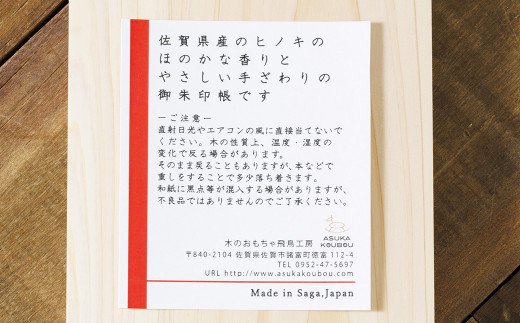 佐賀県産のヒノキの
ほのかな香りと
やさしい手ざわりの
御朱印帳です
ーご注意ー
直射日光やエアコンの風に直接当てないで
ください。木の性質上、温度・湿度の
変化で反る場合があります。
そのまま戻ることもありますが、本などで
重しをすることで多少落ち着きます。
和紙に黒点等が混入する場合がありますが、
不良品ではありませんのでご了承ください。
ASUKA
KOUBOU
木のおもちゃ飛鳥工房
〒840-2104 佐賀県佐賀市諸富町徳富 112-4
TEL 0952-47-5697
URL http://www.asukakoubou.com/
Made in Saga,Japan